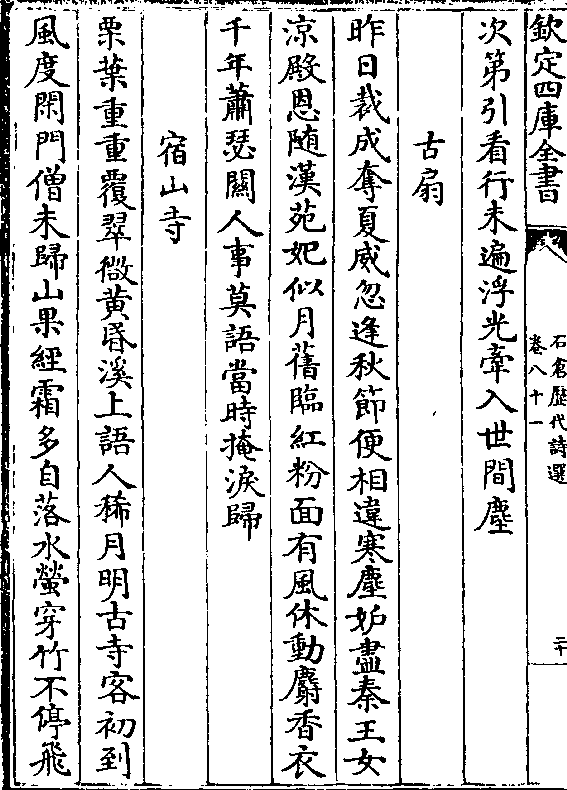 欽定四庫全書
石倉歷代詩選
卷八十一
二十
次第引看行未遍浮光牽入世間塵
古扇
昨日裁成奪夏威忽逢秋節便相違寒塵妒盡秦王女
涼殿恩随漢苑妃似月舊臨紅粉面有風休動麝香衣
千年蕭瑟關人事莫語當時掩淚歸
宿山寺
栗葉重重覆翠微黄昏溪上語人稀月明古寺客初到
風度閑門僧未歸山果經霜多自落水螢穿竹不停飛